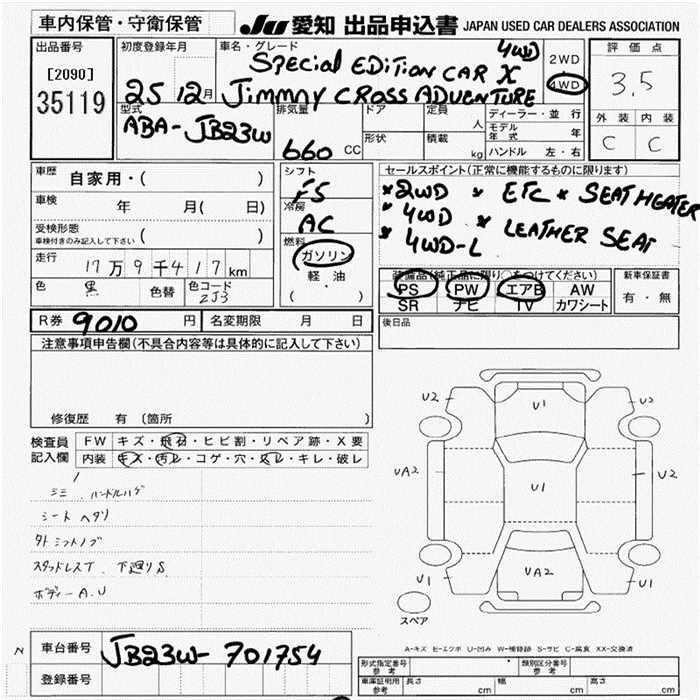 車内保管・守衛保管
JU 愛知 出品申込書 JAPAN USED CAR DEALERS ASSOCIATION
出品番号
[2090]
35119
初度登録年月
25 12月
車名・グレード
4WD
Special EDITION CAR X
Jimmny CROSS ADVENTURE
2WD
4WD
評価点
3.5
外装 内装
C C
型式
ABA-JB23W
排気量
660 CC
ドア
形状
定員 人
積載 kg
ディーラー・並行
モデル年式 年
ハンドル 左・右
車歴 自家用・( )
車検 年 月( 日)
受検形態
車検付きのみ記入して下さい ( )
走行 17万9千417km
色 黒 色替 色コード ZJ3
シフト
F5
冷房
AC
燃料
ガソリン
軽・油
( )
セールスポイント(正常に機能するものに限ります)
*2WD * ETC * SEAT HEATER
*4WD * LEATHER SEAT
*4WD-L
装備品(純正品に限り○をつけてください)
PS PW エアB AW
SR ナビ TV カワシート
新車保証書
有・無
R券 9010 円 名変期限 月 日
後日品
注意事項申告欄(不具合内容等は具体的に記入して下さい)
修復歴 有 (箇所
検査員記入欄
FW キズ・飛石・ヒビ割・リペア跡・X要
内装 キズ・汚レ・コゲ・穴・スレ・キレ・破レ
ハンドルハゲ
シート ヘタリ
スタッドレスT. 下廻りS
ボディーA.U
U2 U1 U2
UA2 U1 U2
U1 UA2 U1
スペア
A-キズ E-エクボ U-凹み W-補修跡 S-サビ C-腐食 XX-交換済
N
車台番号 JB23W-701754
登録番号
形式指定番号 参考
類別区分番号 参考
車庫証明用 参考 長さ cm 幅 cm 高さ cm